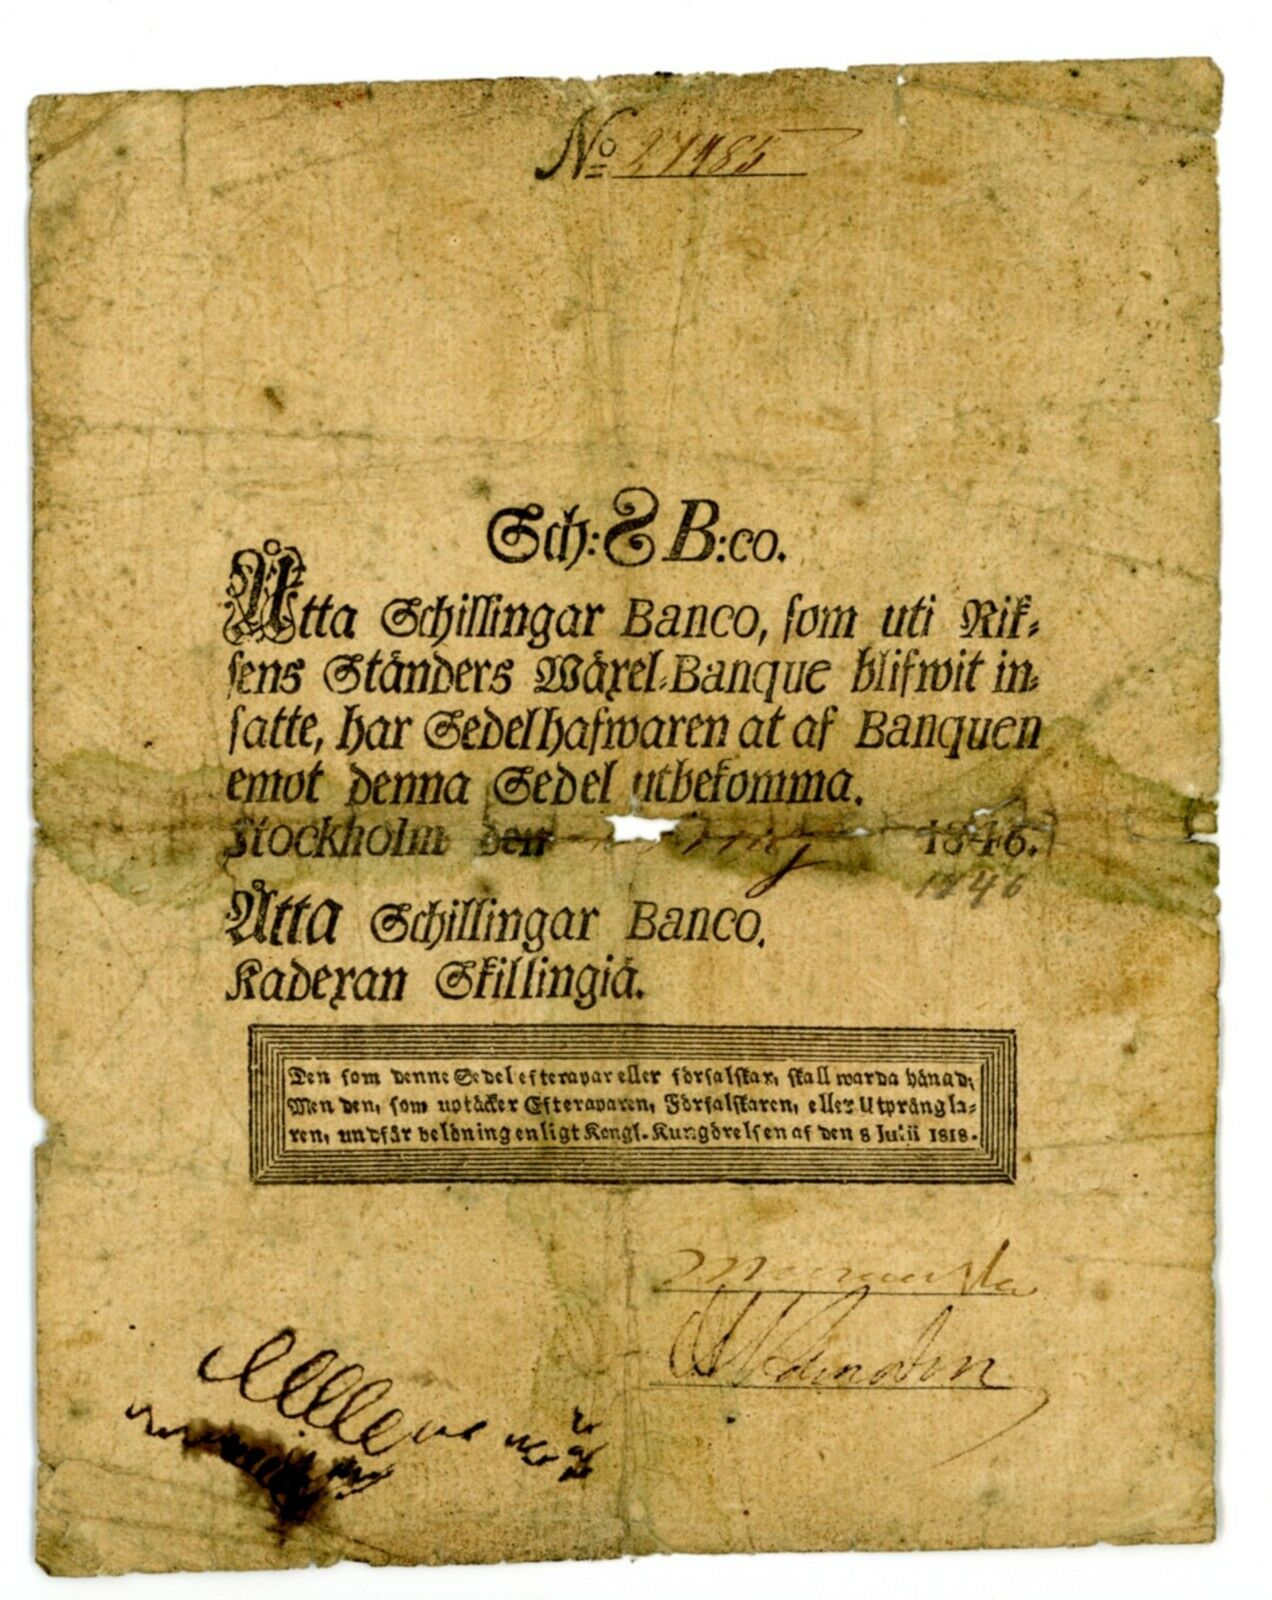 No 27985
Sch: 8 B:co.
Åtta Schillingar Banco, som uti Rik-
sens Ständers Wäxel-Banque blifwit in-
satte, har Sedelhafwaren at af Banquen
emot denna Sedel utbekomma.
Stockholm den 1846.
1846
Åtta Schillingar Banco.
Kadexan Skillingiä.
Den som denne Sedel efterapar eller förfalskar, skall warda hängd;
Men den, som uptäcker Efteraparen, Förfalskaren, eller Utprångla-
ren, undfår belöning enligt Kongl. Kungörelsen af den 8 Julii 1818.